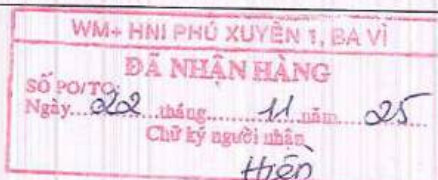 WM+ HNI PHÚ XUYÊN 1, BA VÌ
ĐÃ NHẬN HÀNG
SỐ PO/TO
Ngày...22...tháng...11...năm...25
Chữ ký người nhận
Hiền